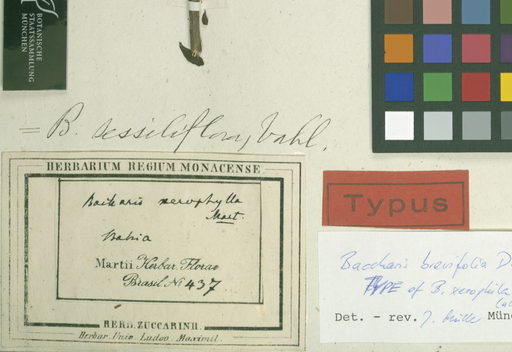 BOTANISCHE
STAATSSAMMLUNG
MÜNCHEN
= B. sessiliflora, Vahl.
HERBARIUM REGIUM MONACENSE
Baccharis xerophylla
Mart.
Bahia
Martii Herbar. Florae
Brasil. No 437
HERB. ZUCCARINII.
Herbar. Univ. Ludov. Maximil.
Typus
Baccharis brevifolia D
TYPE of B. xerophila
Det. - rev. J. Müller Mün